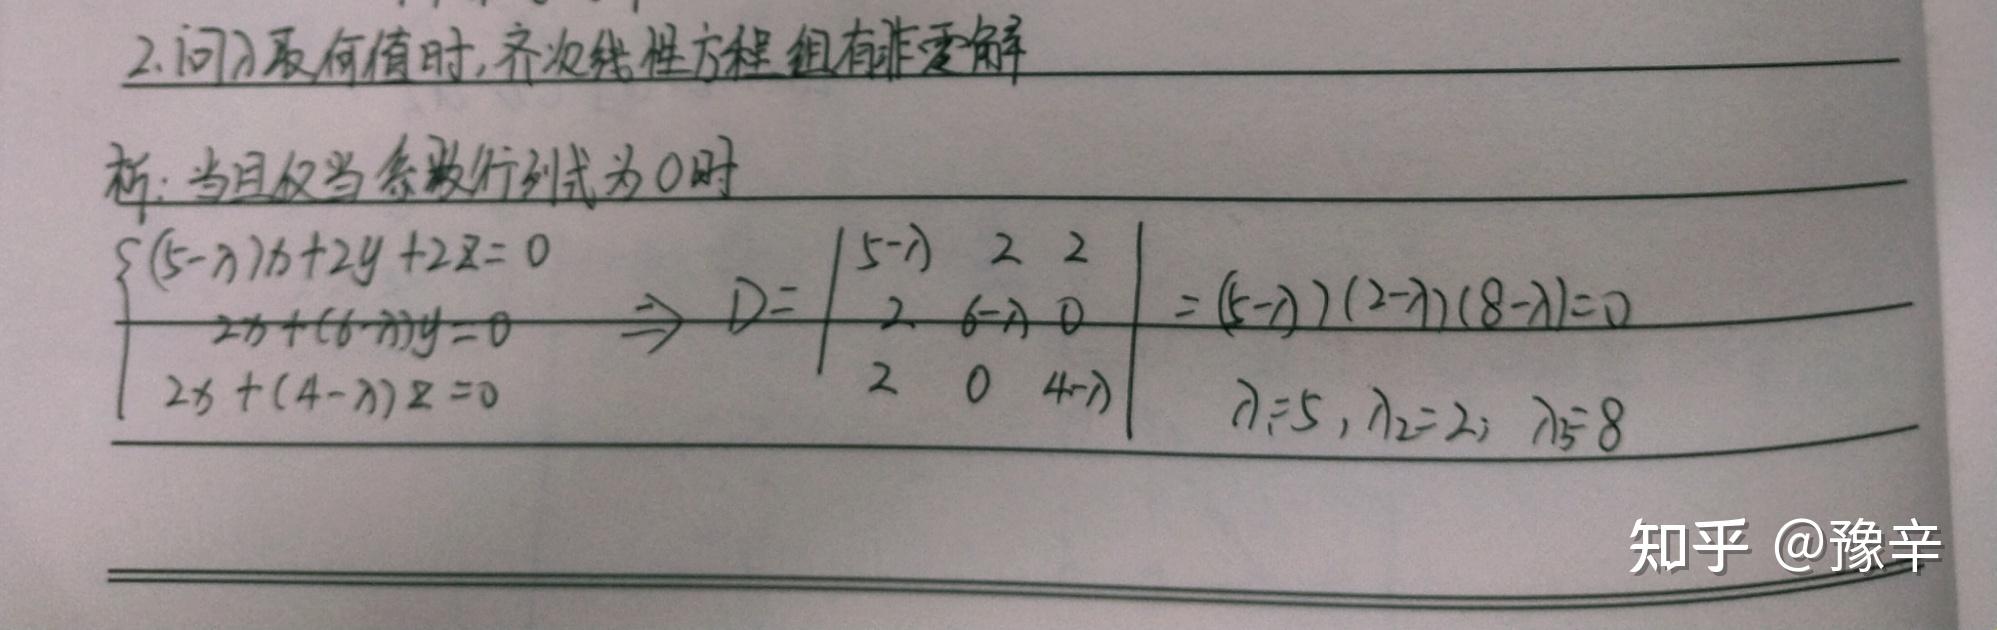 2.问λ取何值时,齐次线性方程组有非零解
析:当且仅当系数行列式为0时
(5-λ)x+2y+2z=0
2x+(6-λ)y=0
2x+(4-λ)z=0
⇒ D=
5-λ 2 2
2 6-λ 0
2 0 4-λ
=(5-λ)(2-λ)(8-λ)=0
λ₁=5,λ₂=2;λ₃=8
知乎 @豫辛